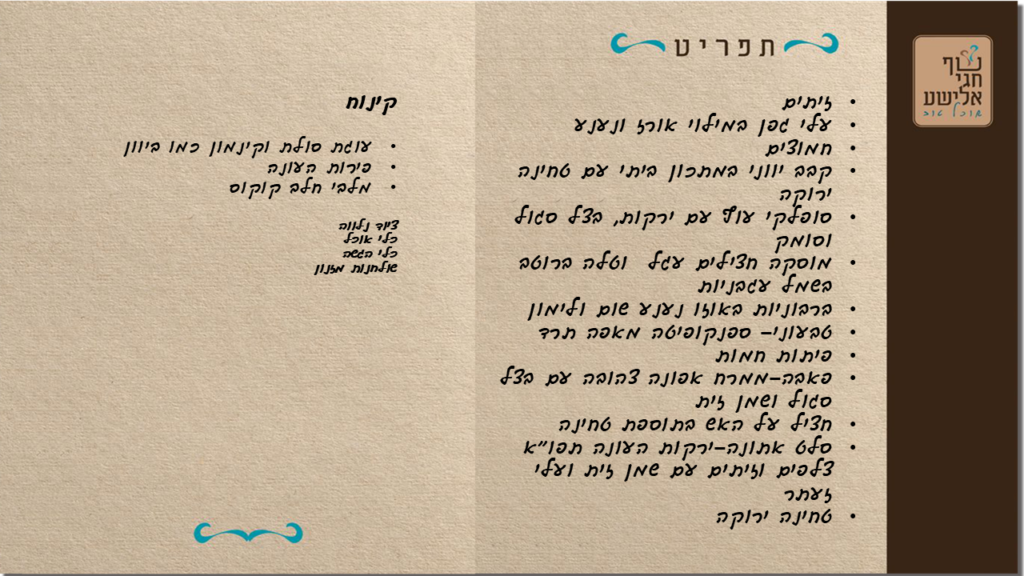 נוף
חגי
אלישע
אוכל טוב
תפריט
• זיתים
• עלי גפן במילוי אורז ונענע
• חמוצים
• קבב יווני במתכון ביתי עם טחינה
ירוקה
• סופלקי עוף עם ירקות, בצל סגול
וסומק
• מוסקה חצילים עגל וטלה ברוטב
בשמל עגבניות
• ברבוניות באוזו נענע שום ולימון
• טבעוני- ספנקופיטה מאפה תרד
• פיתות חמות
• פאבה-ממרח אפונה צהובה עם בצל
סגול ושמן זית
• חציל על האש בתוספת טחינה
• סלט אתונה-ירקות העונה תפו"א
צלפים וזיתים עם שמן זית ועלי
זעתר
• טחינה ירוקה
קינוח
• עוגת סולת וקינמון כמו ביוון
• פירות העונה
• מלבי חלב קוקוס
ציוד נלווה
כלי אוכל
כלי הגשה
שולחנות מזנון